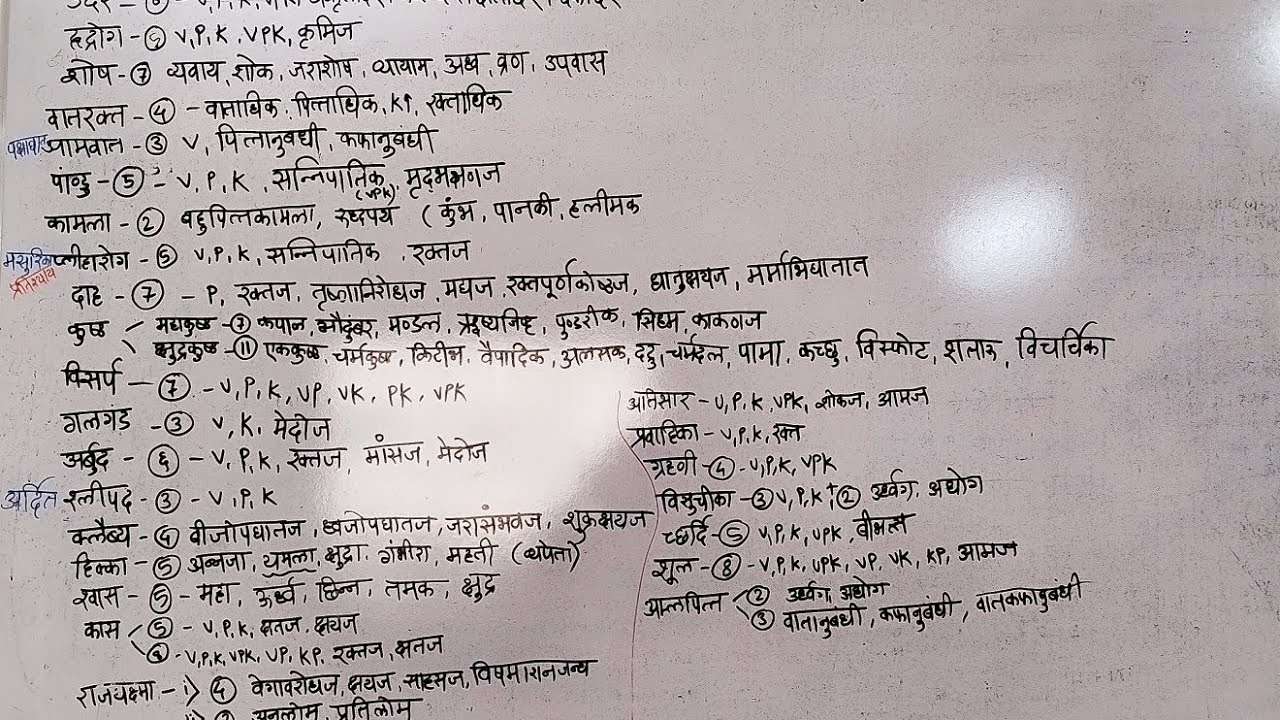 हृद्रोग - ५ V, P, K, VPK, कृमिज
शोष - ७ व्यवाय, शोक, जराशोष, व्यायाम, अध्व, व्रण, उपवास
वातरक्त - ४ - वाताधिक, पित्ताधिक, K↑, रक्ताधिक
आमवात - ③ V, पित्तानुबधी, कफानुबंधी
पांण्डु - ⑤ - V, P, K, सन्निपातिक (VPK), मृद्भक्षणज
कामला - ② बहुपित्तकामला, रुध्दपथ (कुंभ, पानकी, हलीमक
प्लीहारोग - ⑤ V, P, K, सन्निपातिक, रक्तज
प्रतिश्याय
दाह - ⑦ - P, रक्तज, तृष्णानिरोधज, मद्यज, रक्तपूर्णकोष्ठज, धातुक्षयज, मर्माभिघातात
कुष्ठ महाकुष्ठ - ⑦ कपाल, औदुंबर, मण्डल, ऋष्यजिह्व, पुण्डरीक, सिध्म, काकणज
क्षुद्रकुष्ठ - ⑪ एककुष्ठ, चर्मकुष्ठ, किटीभ, वैपादिक, अलसक, दद्रु, चर्मदल, पामा, कच्छु, विस्फोट, शतारु, विचर्चिका
विसर्प - ⑦ - V, P, K, VP, VK, PK, VPK
गलगंड - ③ V, K, मेदोज
अर्बुद - ६ - V, P, K, रक्तज, मांसज, मेदोज
अर्दित श्लीपद - ③ - V, P, K
क्लैब्य - ④ बीजोपघातज, ध्वजोपघातज, जरासंभवज, शुक्रक्षयज
हिक्का - ⑤ अन्नजा, यमला, क्षुद्रा, गंभीरा, महती (व्यपेता)
श्वास - ⑤ - महा, ऊर्ध्व, छिन्न, तमक, क्षुद्र
कास ⑤ - V, P, K, क्षतज, क्षयज
- V, P, K, VPK, VP, KP, रक्तज, क्षतज
राजयक्ष्मा - i) ④ वेगावरोधज, क्षयज, साहसज, विषमाशनजन्य
अनुलोम, प्रतिलोम
अतिसार - V, P, K, VPK, शोकज, आमज
प्रवाहिका - V, P, K, रक्त
ग्रहणी - ④ - V, P, K, VPK
विसुचीका - ③ V, P, K ② उर्ध्वग, अधोग
च्छर्दि - ⑤ V, P, K, VPK, बीभत्स
शूल - ⑧ - V, P, K, VPK, VP, VK, KP, आमज
आम्लपित्त ② उर्ध्वग, अधोग
③ वातानुबंधी, कफानुबंधी, वातकफानुबंधी